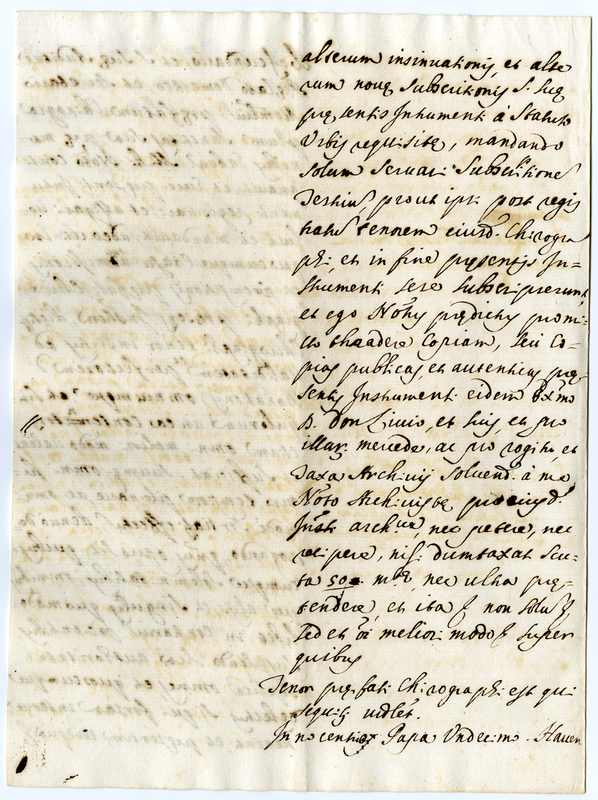 alterum insinuationis, et alte
rum novæ subscritionis s. hui
præsentis Instrumenti à Statuto
Urbis requisitæ, mandando
solum servari subscritiones
Testiũ prout ipsi post regis
tratũ tenorem eiusd. Chirogra
phi, et in fine præsentis In=
strumenti sese subscripserunt,
et ego Nots prædictus promi-
tto tradere Copiam, seu Co-
pias publicas, et autenticas præ
sentis Instrumenti eidem Exmo
D. Don Livio, et suis et pro
illar. mercede, ac pro rogitu, et
Taxa Archivij solvend. à me
Noto Archivistæ pro eiusd.
Insti arch.ne, nec petere, nec
recipere, nisi dumtaxat scu-
ta 50= mta, nec ultra præ-
tendere, et ita non solũ
sed et oi meliori modo super
quibus
Tenor præfati Chirographi est qui
sequit. vidlet.
Innocentius Papa Undecimo. Haven